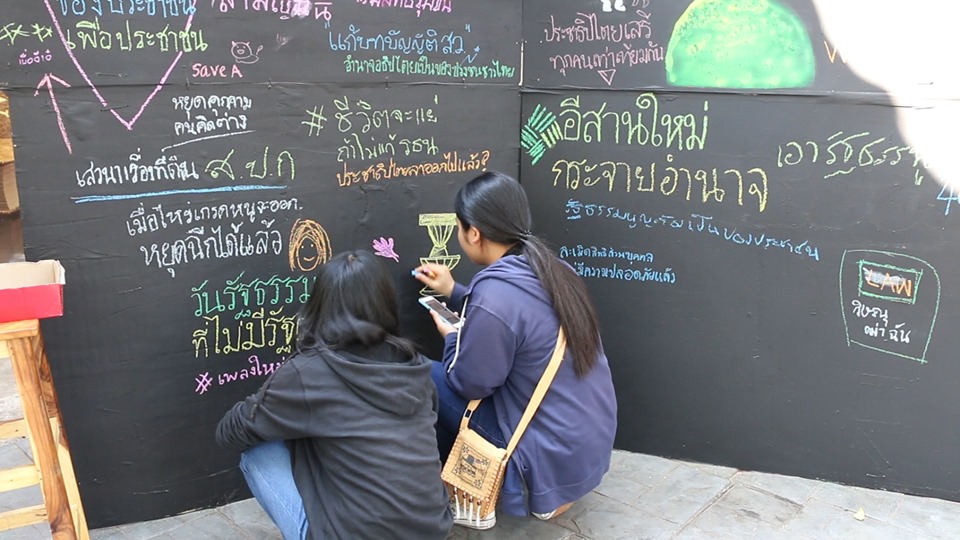 ของประชาชน
เพื่อประชาชน
Save A
"แก้บทบัญญัติ สว"
อำนาจอธิปไตยเป็นของปวงชนชาวไทย
ประชาธิปไตยเสรี
ทุกคนเท่าเทียมกัน
หยุดคุกคาม
คนคิดต่าง
เสวนาเรื่องที่ดิน ส.ป.ก
เมื่อไหร่เกรดหนูจะออก
หยุดฉีกได้แล้ว
วันรัฐธรรม
ที่ไม่มีรัฐ
เพลงใหม่
# ชีวิตจะแย่
ถ้าไม่แก้ รธน
ประชาธิปไตยลาออกไปแล้ว?
อีสานใหม่
กระจายอำนาจ
รัฐธรรมนูญต้องเป็นของประชาชน
ละเมิดสิทธิส่วนบุคคล
มีความปลอดภัยแล้ว
เอารัฐธรรม
LAW
วิษณุ
ฆ่าฉัน